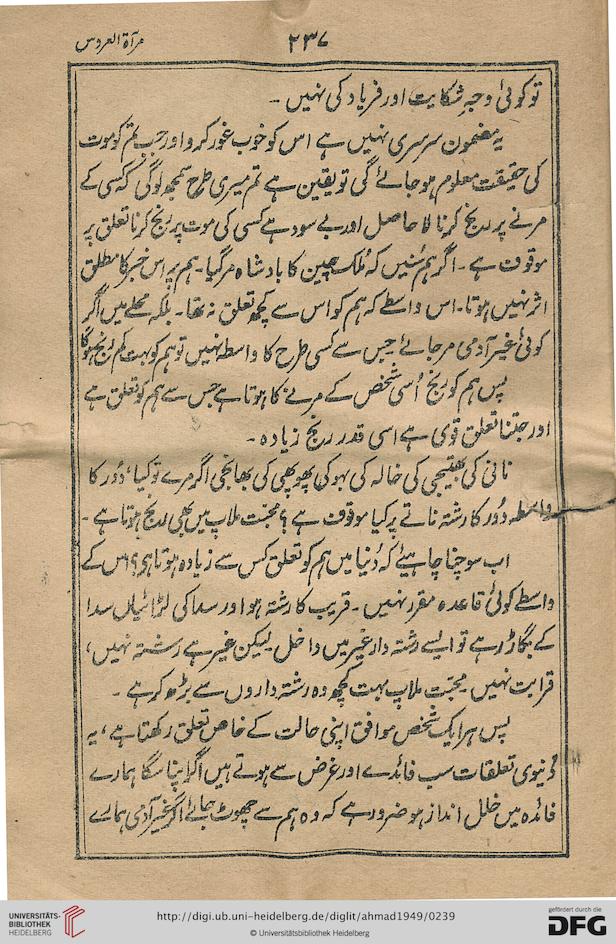 مرآة العروس
۲۳۷
تو کوئی وجہِ شکایت اور فریاد کی نہیں ۔
یہ مضمون سرسری نہیں ہے اس کو خوب غور کرو اور جب تم کو موت
کی حقیقت معلوم ہو جائے گی تو یقین ہے تم میری طرح سمجھ لوگی کہ کسی کے
مرنے پر رنج کرنا لا حاصل اور بے سود ہے کسی کی موت پر رنج کرنا تعلق پر
موقوف ہے ۔ اگر ہم سُنیں کہ مُلک چین کا بادشاہ مر گیا ۔ ہم پر اس خبر کا مطلق
اثر نہیں ہوتا ۔ اس واسطے کہ ہم کو اس سے کچھ تعلق نہ تھا ۔ بلکہ محلے میں اگر
کوئی غیر آدمی مر جائے جس سے کسی طرح کا واسطہ نہیں تو ہم کو بہت کم رنج ہوگا
پس ہم کو رنج اُسی شخص کے مرنے کا ہوتا ہے جس سے ہم کو تعلق ہے
اور جتنا تعلق قوی ہے اسی قدر رنج زیادہ ۔
نانی کی بھتیجی کی خالہ کی بہو کی پھوپھی کی بھانجی اگر مرے تو کیا ، دُور کا
واسطہ دُور کا رشتہ ناتے پر کیا موقوف ہے ؟ محبّت ملاپ میں بھی رنج ہوتا ہے ۔
اب سوچنا چاہیئے کہ دُنیا میں ہم کو تعلق کس سے زیادہ ہوتا ہی ؟ اس کے
واسطے کوئی قاعدہ مقرر نہیں ۔ قریب کا رشتہ ہو اور سدا کی لڑائیاں سدا
کے بگاڑ رہے تو ایسے رشتہ دار غیر میں داخل لیکن غیر ہے رشتہ نہیں ،
قرابت نہیں ۔ محبّت ملاپ بہت کچھ وہ رشتہ داروں سے بڑھ کر ہے ۔
پس ہر ایک شخص موافق اپنی حالت کے خاص تعلق رکھتا ہے ، یہ
دُنیوی تعلقات سب فائدے اور غرض سے ہوتے ہیں اگر اپنا سگا ہمارے
فائدہ میں خلل انداز ہو ضرور ہے کہ وہ ہم سے چھوٹ جائے اگر غیر آدمی ہمارے
UNIVERSITÄTS-
BIBLIOTHEK
HEIDELBERG
http://digi.ub.uni-heidelberg.de/diglit/ahmad1949/0239
© Universitätsbibliothek Heidelberg
gefördert durch die
DFG